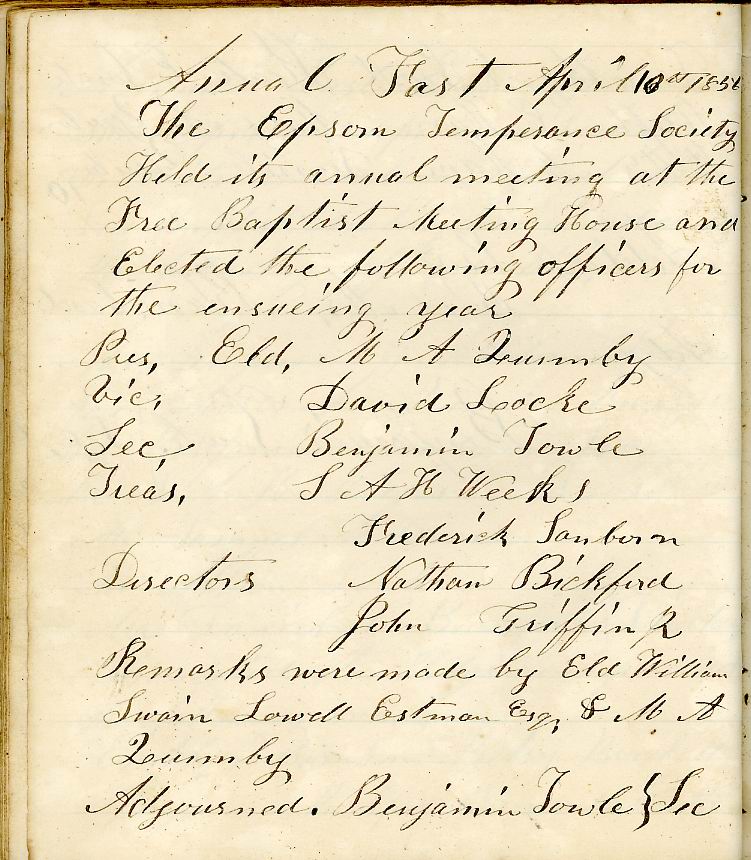 Annual Fast April 10th 1856
The Epsom Temperance Society
Held its annual meeting at the
Free Baptist Meeting House and
Elected the following officers for
the ensueing year
Pres, Eld, M A Quimby
Vic, David Locke
Sec Benjamin Towle
Treas, S A H Weeks
Frederick Sanborn
Directors Nathan Bickford
John Griffin
Remarks were made by Eld William
Swain Lowell Eastman Esq, & M A
Quimby
Adjourned. Benjamin Towle } Sec